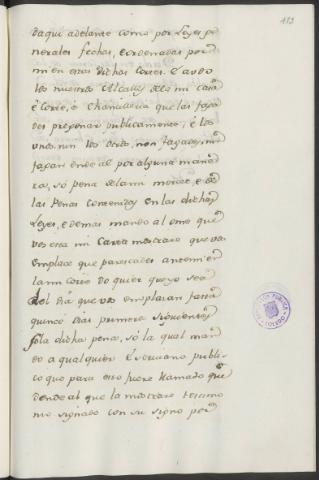 113
daqui adelante como por Leyes ge
nerales fechas, e ordenadas por
mi en estas dichas Cortes. E a vos
los nuestros Alcalles de la mi casa
e Corte, e Chancilleria que las faga
des pregonar publicamente; e los
unos, nin los otros, non fagades, nin
fagan ende al por alguna mane
ra, só pena de la mi merced, e de
las Penas contenidas en las dichas
Leyes, e demas mando al ome que
vos esta mi Carta mostrare que vos
emplace que parescades ante mi en
la mi Corte do quier que yo sea
del dia que vos emplazare fasta
quince dias primeros siguientes
so la dicha pena, só la qual man
do a qualquier Escrivano publi
co que para esto fuere llamado que
dende al que la mostrare testimo
nio signado con su signo por
PUBLICA
TOLEDO